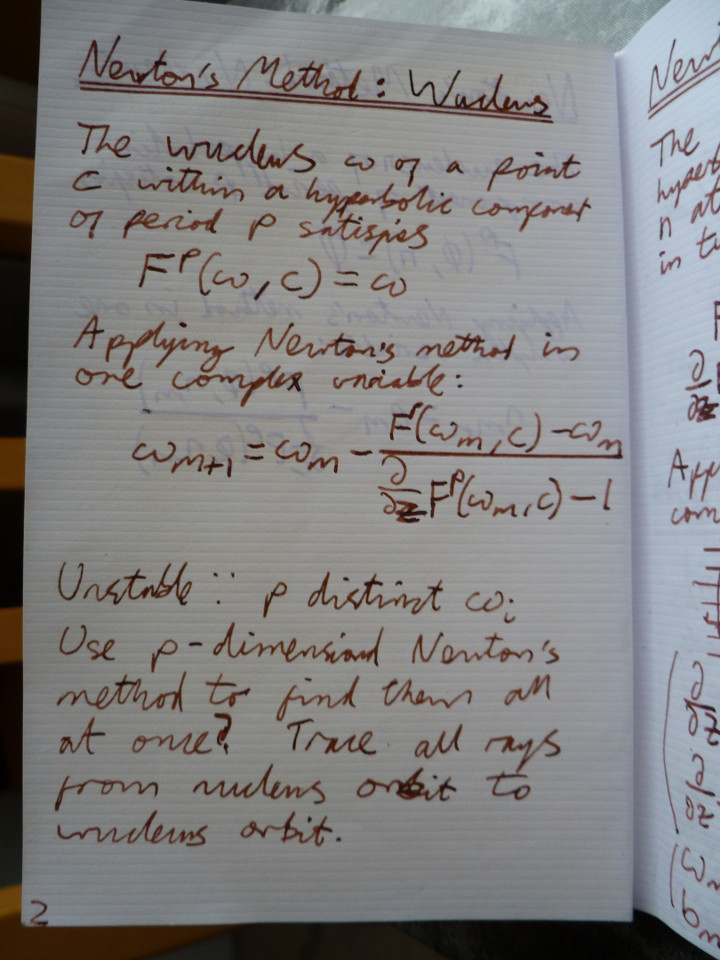 Newton's Method: Wucleus
The wucleus ω of a point
c within a hyperbolic component
of period p satisfies
F^p(ω, c) = ω
Applying Newton's method in
one complex variable:
ω_{m+1} = ω_m - (F^p(ω_m, c) - ω_m) / (∂/∂z F^p(ω_m, c) - 1)
Unstable ∵ p distinct ω_i
Use p-dimensional Newton's
method to find them all
at once? Trace all rays
from nucleus orbit to
wucleus orbit.
2
The
n at